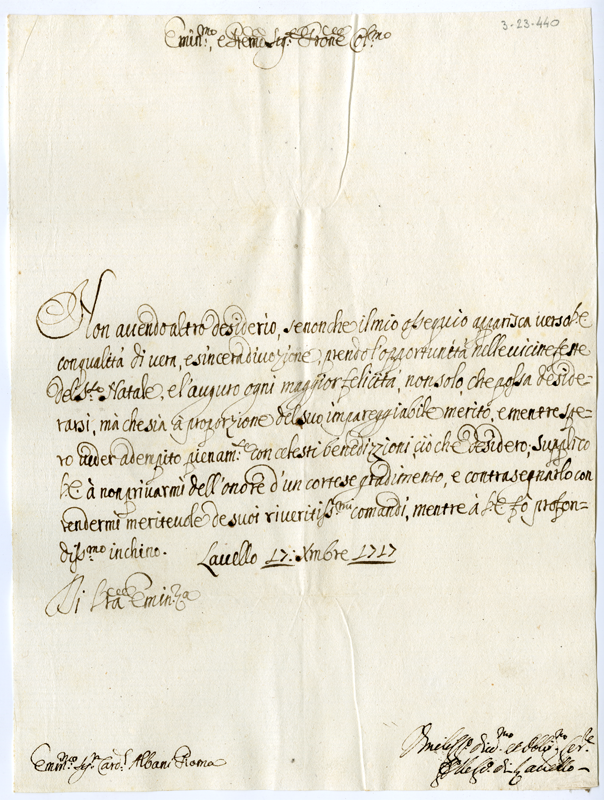 3-23-440
Emin.mo, e Rev.mo Sig.re Prone Col.mo
Non avendo altro desiderio, se non che il mio ossequio apparisca verso V.E
con qualità di vera, e sincera divozione, prendo l'opportunità nelle vicine feste
del S.to Natale, e l'auguro ogni maggior felicità, non solo, che possa deside-
rarsi, mà che sia a proporzione del suo impareggiabile merito, e mentre spe-
ro veder adempito pienam.te con celesti benedizioni ciò che desidero; supplico
V.E à non privarmi dell'onore d'un cortese gradimento, e contrasegnarlo con
rendermi meritevole de suoi riveritiss.mi comandi, mentre à V.E fò profon-
diss.mo inchino. Lavello 17: Xmbre 1717
Di V.ra Emin.za
Emin.mo Sig.r Card.l Albani Roma
Umiliss.o Divo.mo et Oblig.mo Ser.re
Il Vesc.o di Lavello